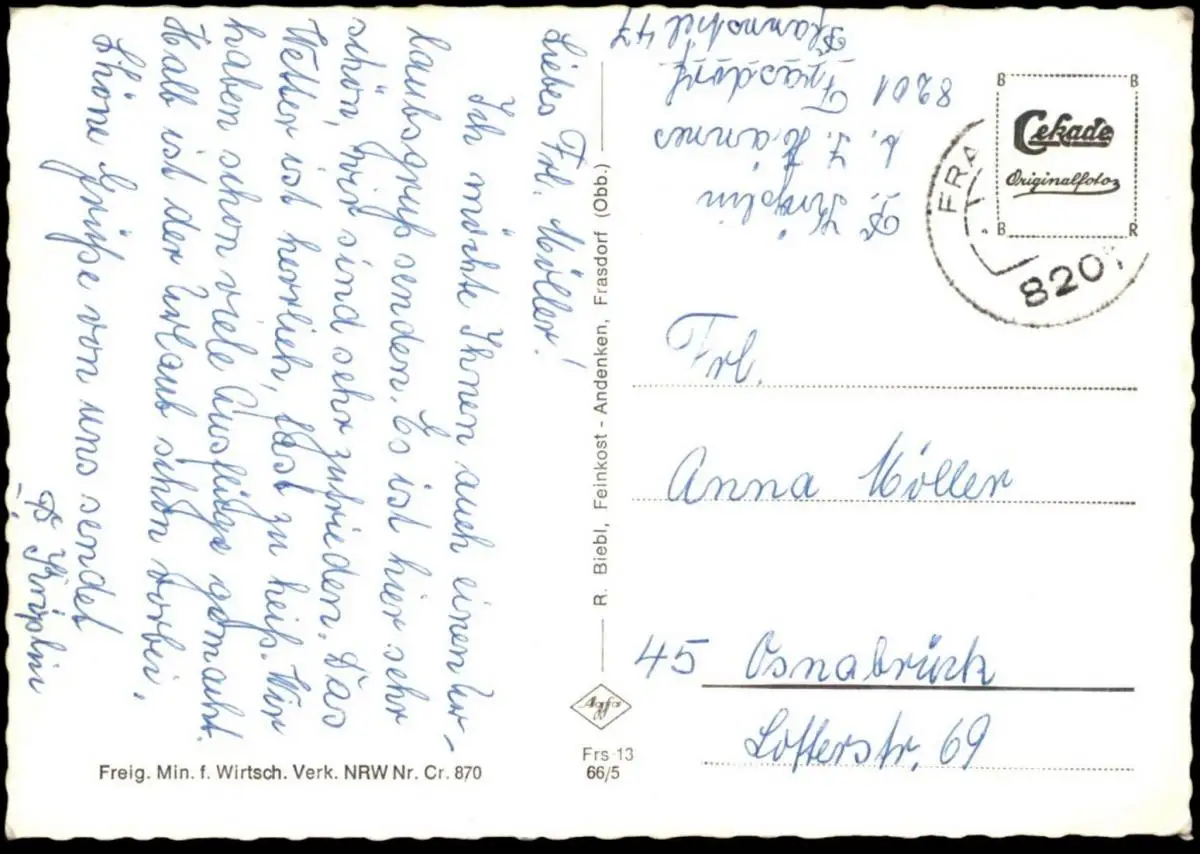 Liebes Frl. Möller!
Ich möchte Ihnen auch einen Ur-
laubsgruß senden. Es ist hier sehr
schön, wir sind sehr zufrieden. Das
Wetter ist herrlich, fast zu heiß. Wir
haben schon viele Ausflüge gemacht.
Halb ist der Urlaub schon vorbei.
Schöne Grüße von uns sendet
F. Kröplin
F. Kröplin
b. J. Hannes
8201 Frasdorf
47
Cekade
Originalfoto
B B
B R
FRA
8201
R. Biebl, Feinkost - Andenken, Frasdorf (Obb.)
Frl.
Anna Möller
45 Osnabrück
Lotterstr. 69
Agfa
Frs-13
66/5
Freig. Min. f. Wirtsch. Verk. NRW Nr. Cr. 870